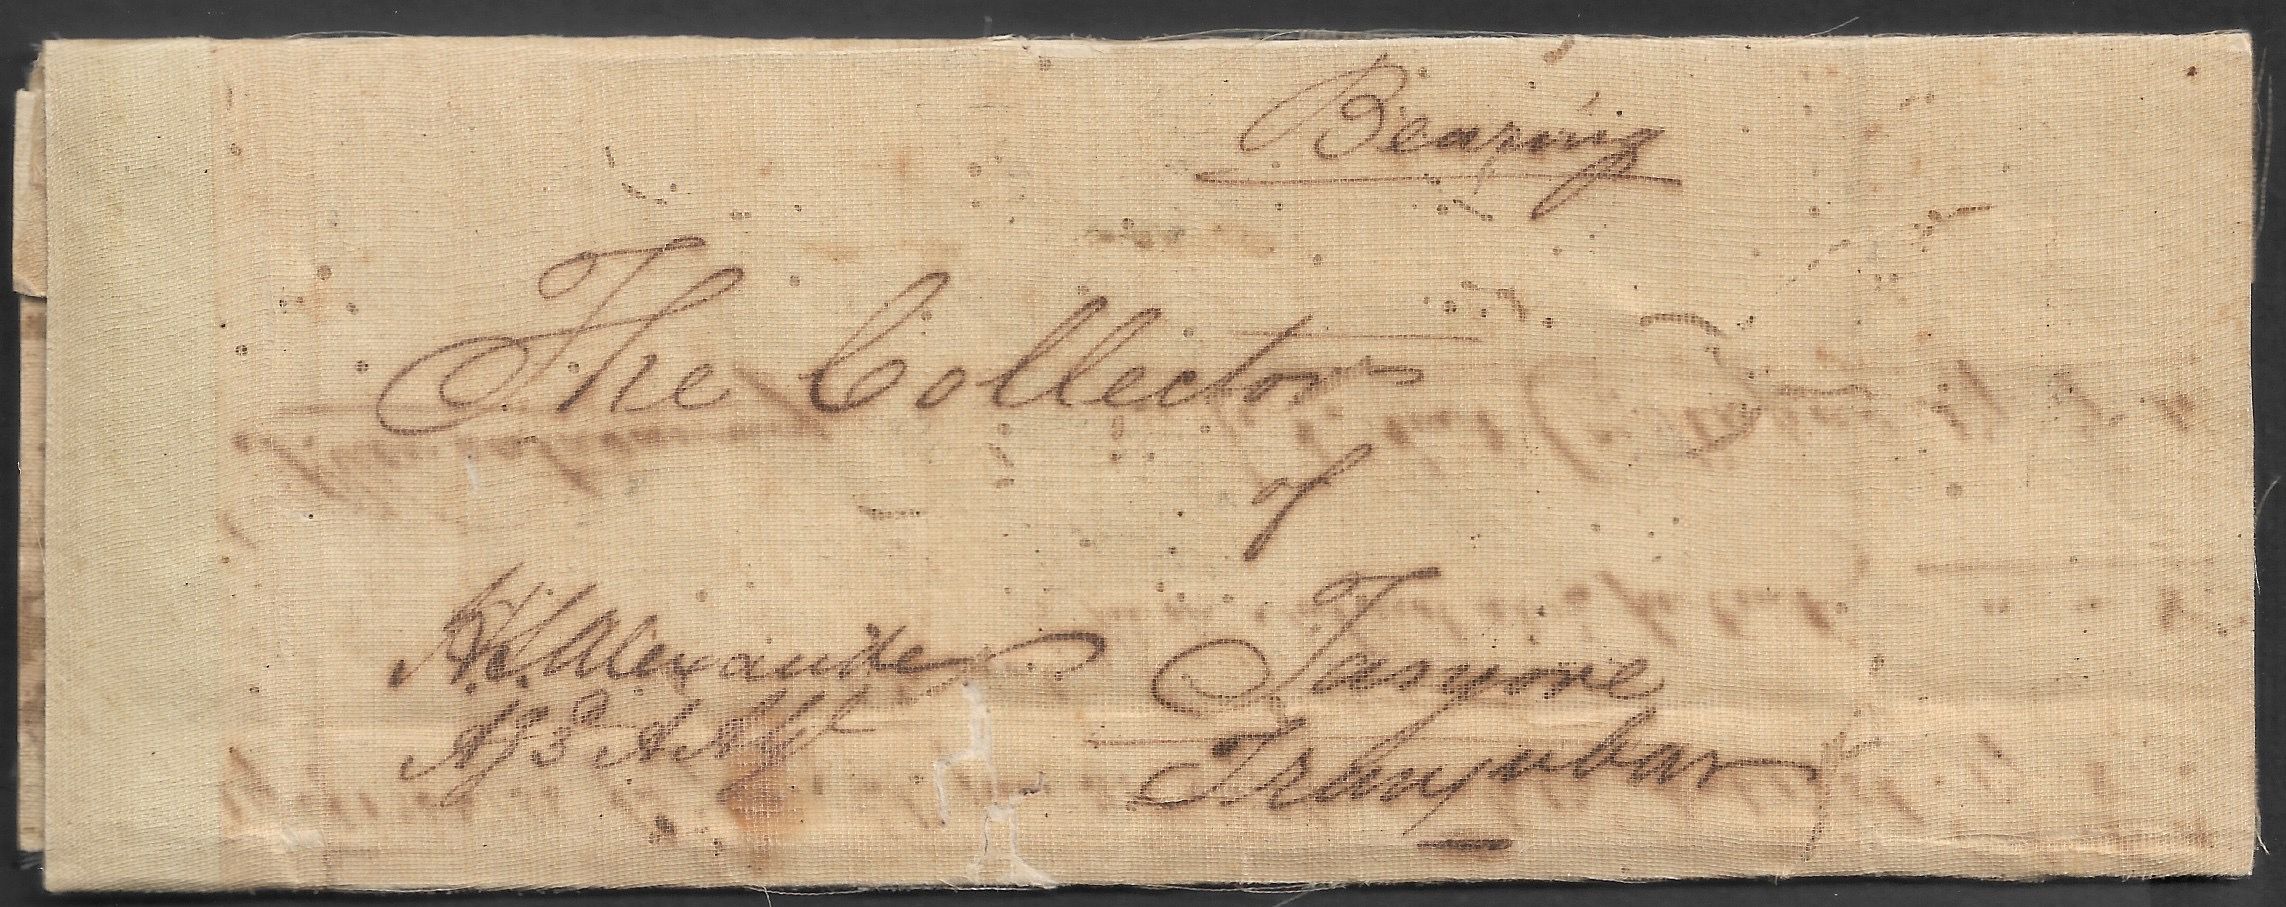 Bearing
The Collector
of
Tanjore
Tranquebar
H. Alexander